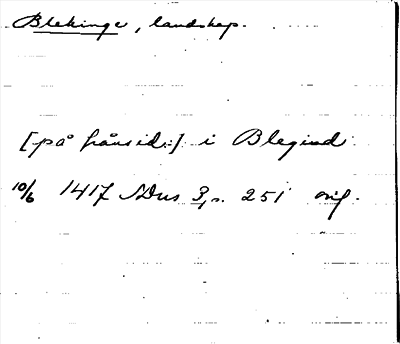 Blekinge, landskap.
[på frånsid.:] i Blegind
10/6 1417 SDns 3, s. 251 orig.